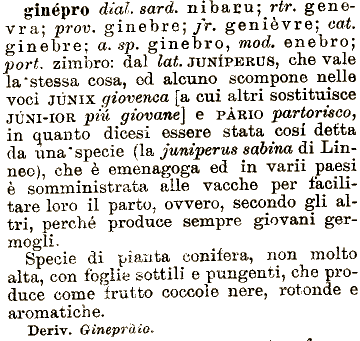 ginépro dial. sard. nibaru; rtr. gene-
vra; prov. ginebre; fr. genièvre; cat.
ginebre; a. sp. ginebro, mod. enebro;
port. zimbro: dal lat. JUNÍPERUS, che vale
la stessa cosa, ed alcuno scompone nelle
voci JÚNIX giovenca [a cui altri sostituisce
JÚNI-IOR piú giovane] e PÀRIO partorisco,
in quanto dicesi essere stata cosí detta
da una specie (la juniperus sabina di Lin-
neo), che è emenagoga ed in varii paesi
è somministrata alle vacche per facili-
tare loro il parto, ovvero, secondo gli al-
tri, perché produce sempre giovani ger-
mogli.
Specie di pianta conifera, non molto
alta, con foglie sottili e pungenti, che pro-
duce come frutto coccole nere, rotonde e
aromatiche.
Deriv. Ginepràio.